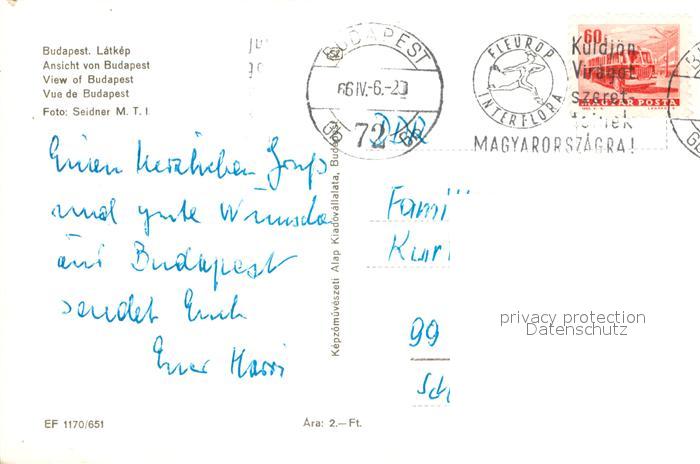 Budapest. Látkép
Ansicht von Budapest
View of Budapest
Vue de Budapest
Foto: Seidner M. T. I.
BUDAPEST
66 IV.-6.-20
72
FLEUROP
INTERFLORA
60
Küldjön
Virágot
szeret-
teinek
MAGYARORSZÁGRA!
MAGYAR POSTA
DDR
Einen herzlichen Gruß
und gute Wünsche
aus Budapest
sendet Euch
Euer Harri
Képzőművészeti Alap Kiadóvállalata, Budapest
Fami
Kur
99
Sch
privacy protection
Datenschutz
EF 1170/651
Ára: 2.—Ft.